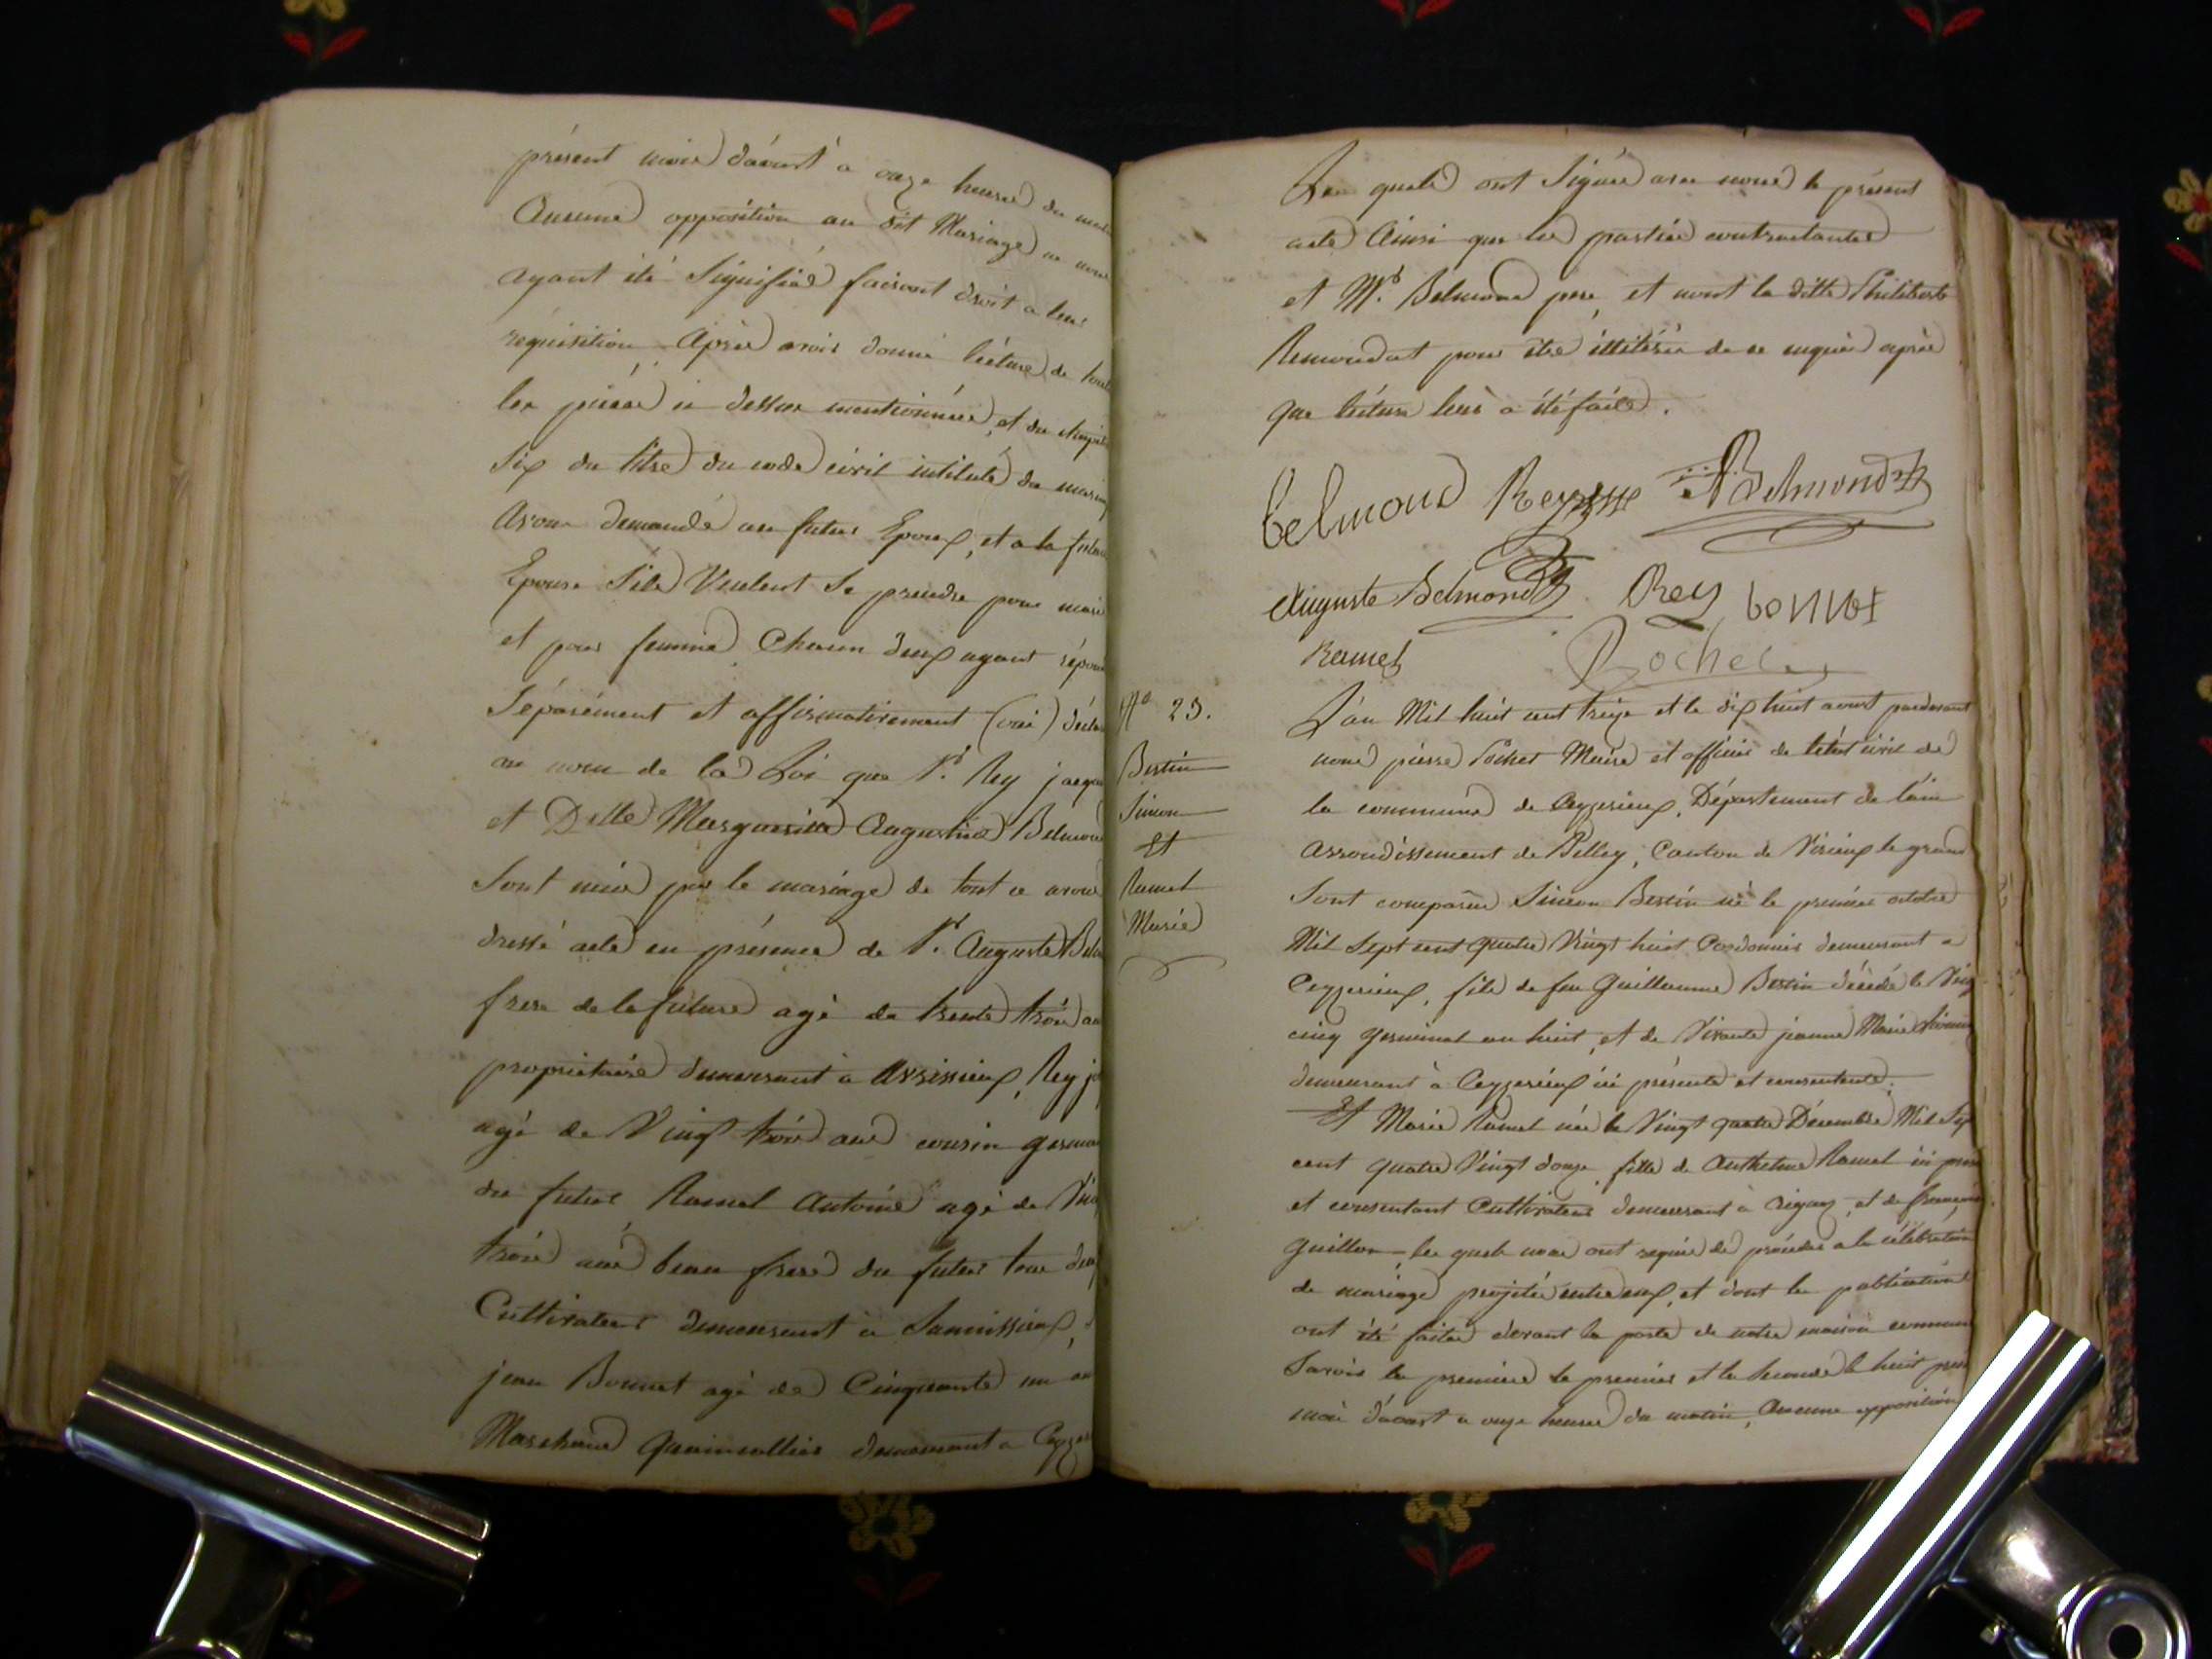 présent mois d'avout à onze heures du
Aucune opposition au dit Mariage ne nous
ayant été Signifiée faisant droit a leur
réquisition Après avoir donné lécture de
les piéces ci dessus mentionnées, et du
Six du titre du code civil intitulé du
Avons demandé au futur Epoux, et a la
Epouse S'ils Veulent Se prendre pour mari
et pour femme Chacun deux ayant
Séparément et affirmativement (oui)
au nom de la Loi que Sr. Rey
et Delle Marguerite Augustine
Sont unis par le mariage de tout ce avons
dressé acte en présence de Sr. Auguste
frere de la future agé de trente trois
propriétaire demeurant à Arvissieux, Rey
agé de Vingt trois ans cousin
du futur Ramel Antoine agé de
trois ans beau frere du futur tous
Cultivateurs demeurant à
jean Bonnet agé de Cinquante un
Marchand Quaincallier demeurant a
Les quels ont Signé avec nous le présent
acte Ainsi que les parties contractantes
et Mr. Belmond pere, et nont la ditte Philiberte
Remondat pour être illitérée de ce enquise après
que lécture leur a été faite.
belmond Rey A Belmond
Auguste Belmond Rey bonnet
Ramel Pochet
No 23.
Bertin
Simeon
Et
Ramel
Marie
L'an Mil huit cent treize et le dix huit avout pardevant
nous pierre Pochet Maire et officier de l'état civil de
la commune de Ceyzerieux, Département de l'ain
Arrondissement de Belley, Canton de Virieux le grand
Sont comparus Simeon Bertin né le premier octobre
Mil Sept cent quatre Vingt huit Cordonnier demeurant a
Ceyzerieux, fils de feu Guillaume Bertin décédé le
cinq germinal an huit, et de Vivante jeanne Marie
demeurant à Ceyzerieux ici présente et consentente.
Et Marie Ramel née le Vingt quatre Décembre Mil
cent quatre Vingt douze fille de Anthelme Ramel ici
et consentant Cultivateur demeurant à, et de
Guillon, les quels nous ont requis de procéder a la célébration
de mariage projetté entre eux, et dont les publications
ont été faites devant la porte de notre maison
Savoir la premiere le premier et la Seconde le huit
mois d'avout a onze heures du matin, Aucune opposition